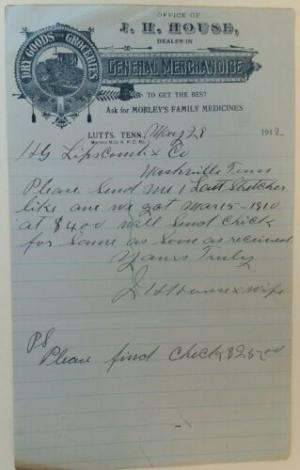 OFFICE OF
J. H. HOUSE,
DEALER IN
DRY GOODS GROCERIES
GENERAL MERCHANDISE
TO GET THE BEST
Ask for MORLEY'S FAMILY MEDICINES
LUTTS, TENN., May 28 1912
H G Lipscomb & Co
Nashville Tenn
Please Send me 1 Stretcher
like one we got Mar 15-1910
at $4.00 will Send Check
for Same as Soon as received
Yours Truly
J H House & Wife
PS
Please find Check $25.00